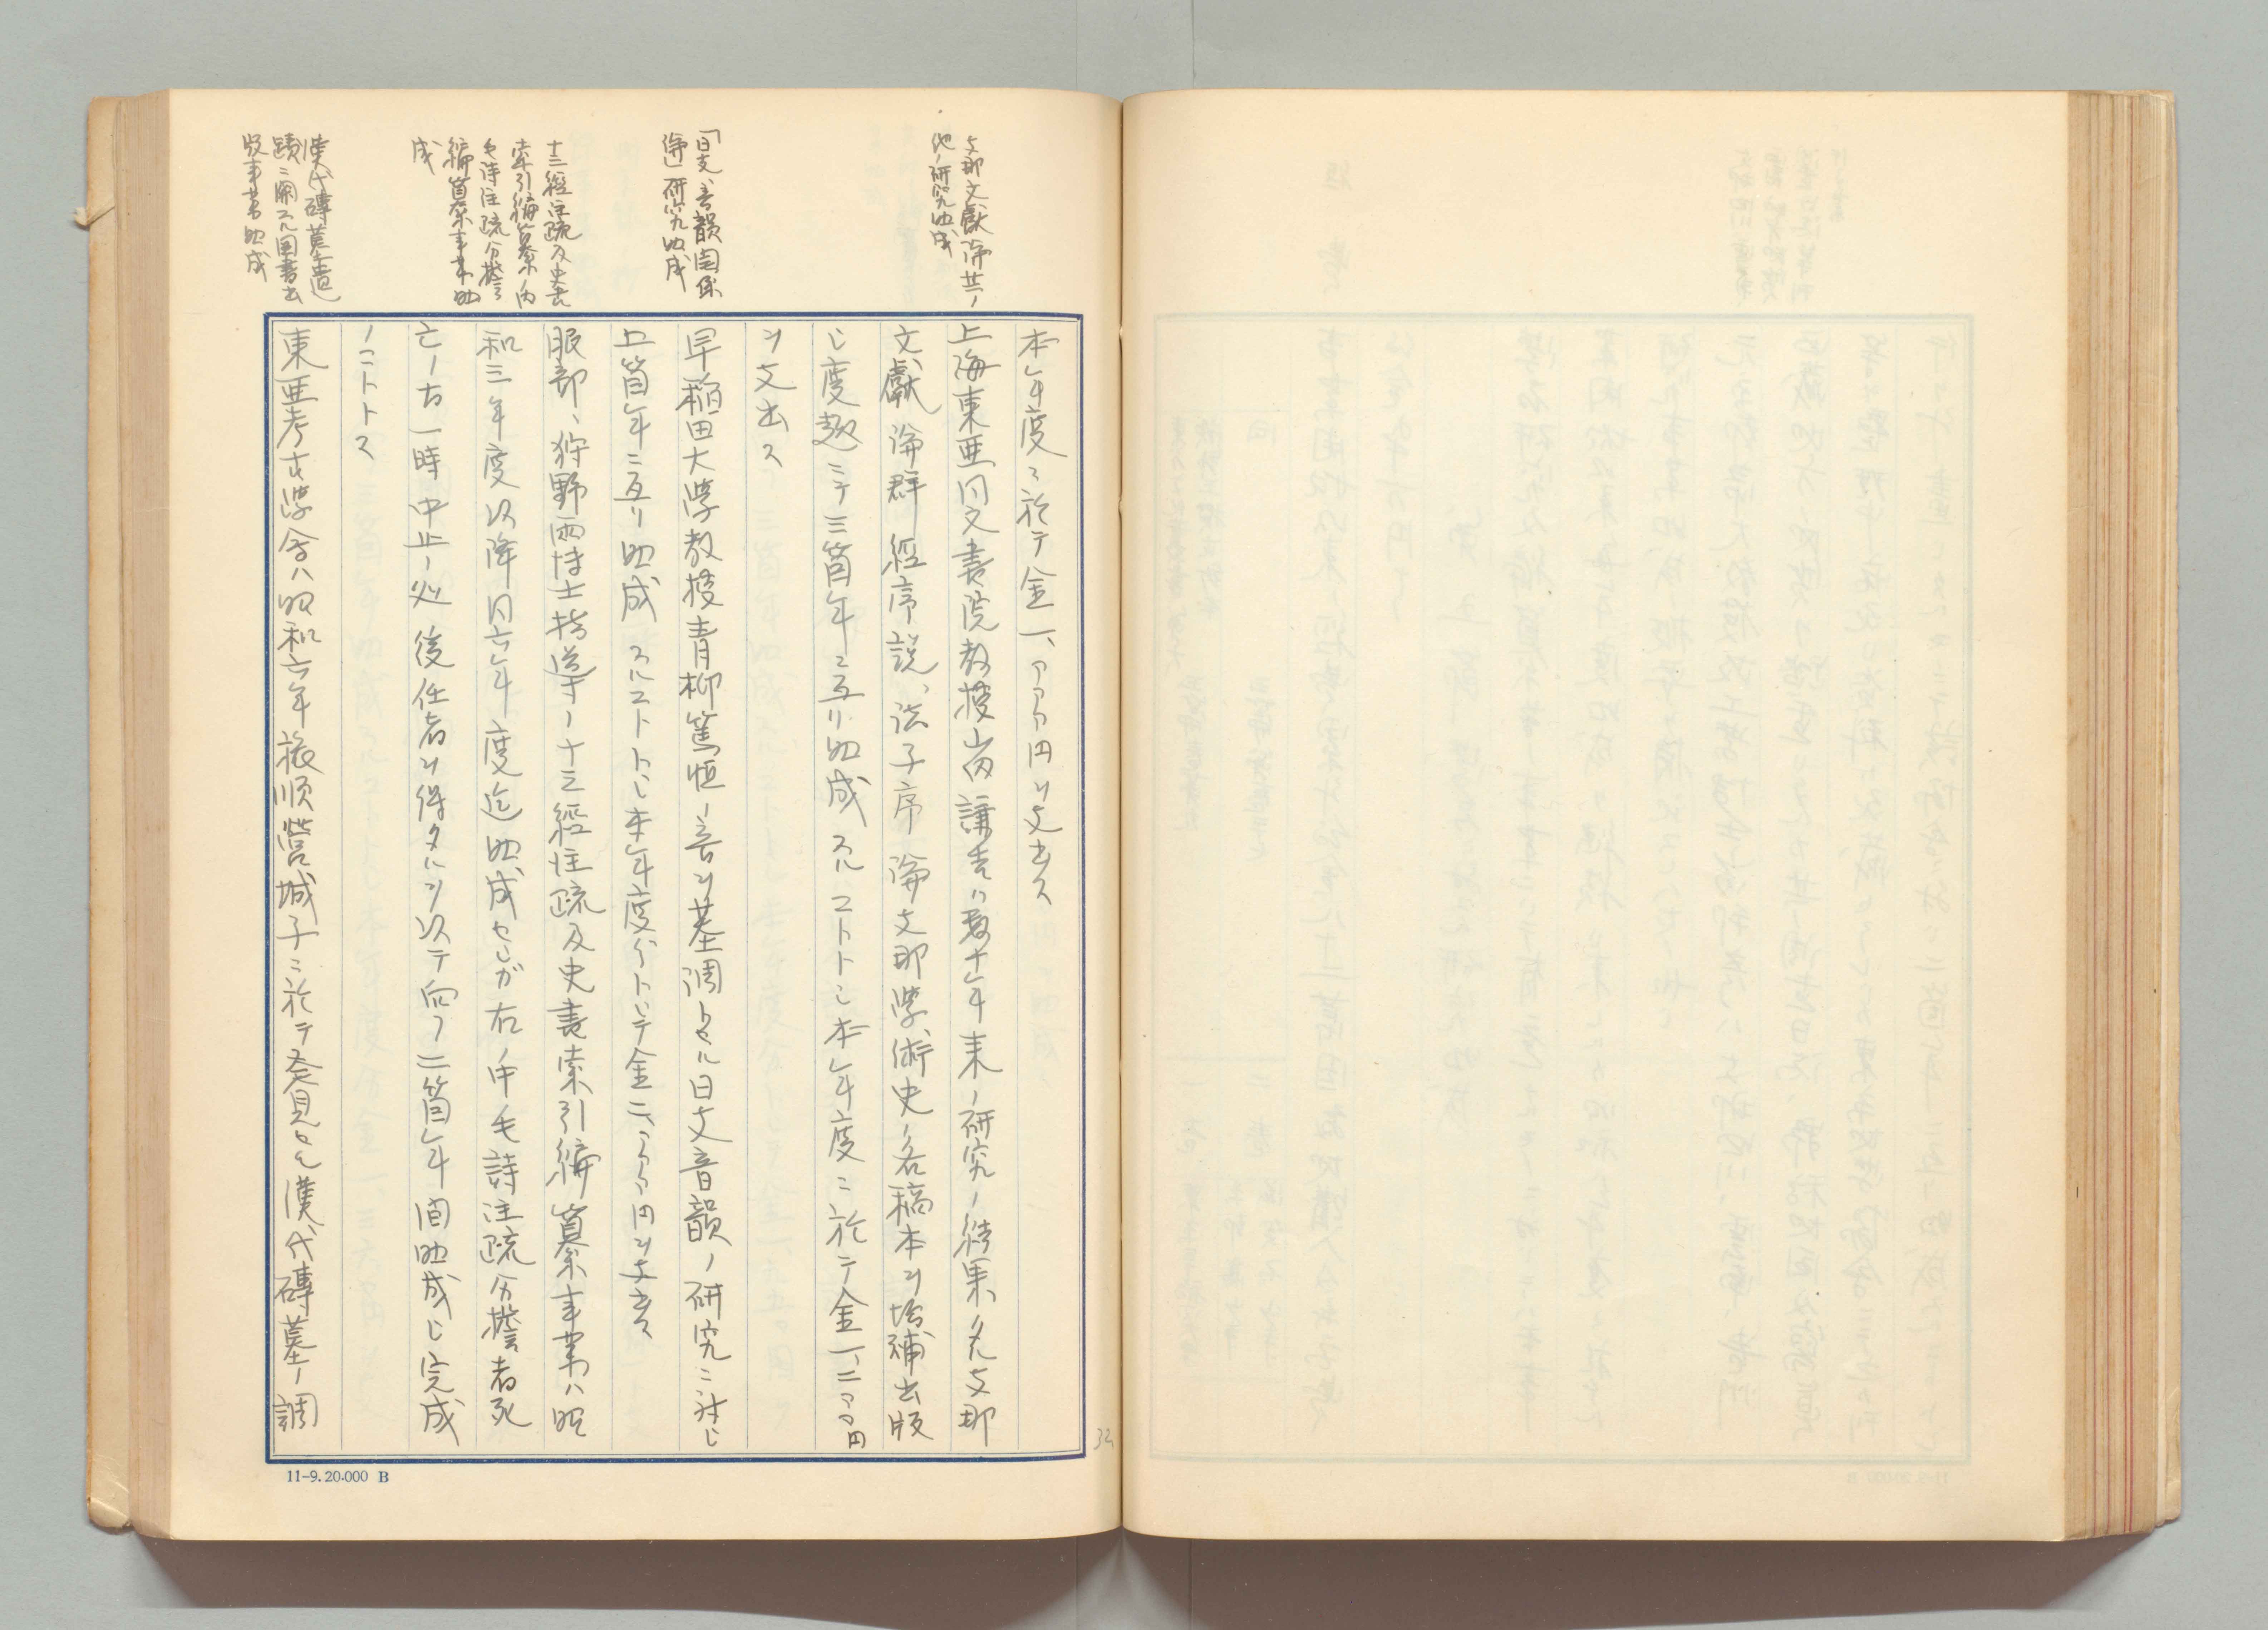 支那文獻論其ノ
他ノ研究助成
「日支」音韻関係
論」研究助成
十三經注疏及史表
索引編纂ノ内
毛詩注疏分擔
編纂事業助
成
漢代磚墓遺
蹟ニ関スル図書出
版事業助成
本年度ニ於テ金一、〇〇〇円ヲ支出ス
上海東亜同文書院教授山田謙吉ハ数十年来ノ研究ノ結果タル支那
文獻論群經序説、諸子序論支那学術史ノ各稿本ヲ増補出版
シ度趣ニテ三箇年ニ亙リ助成スルコトトシ本年度ニ於テ金一、二〇〇円
ヲ支出ス
早稲田大学教授青柳篤恒ノ音ヲ基調トセル日支音韻ノ研究ニ対シ
二箇年ニ亙リ助成スルコトトシ本年度分トシテ金二、〇〇〇円ヲ支出ス
服部、狩野両博士指導ノ十三經注疏及史表索引編纂事業ハ昭
和三年度以降同六年度迄助成セシガ右ノ中毛詩注疏分擔者死
亡ノ為一時中止ノ処後任者ヲ得タルヲ以テ向フ二箇年間助成シ完成
ノコトトス
東亜考古学会ハ昭和六年旅順営城子ニ於テ発見セル漢代磚墓ノ調
32
11-9.20.000 B